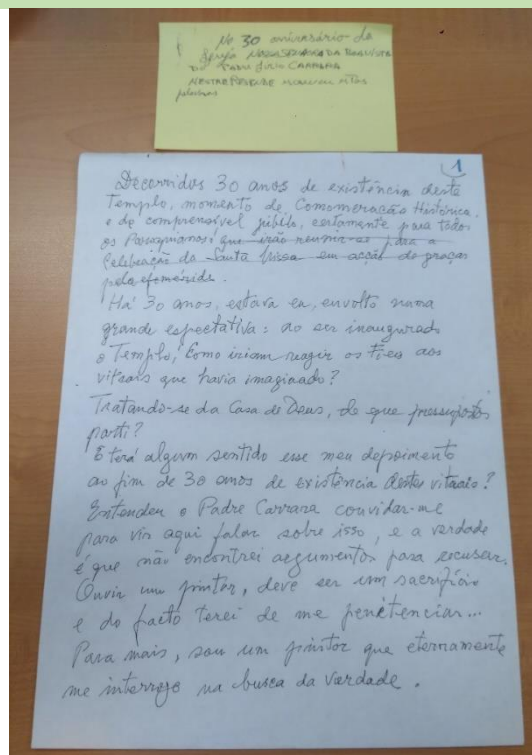 No 30 aniversário da
Igreja NOSSA SENHORA DA BOAVISTA
DO PADRE JÚLIO CARRARA
MESTRE RESENDE escreveu estas
palavras
1
Decorridos 30 anos de existência deste
Templo, momento de Comemoração Histórica,
e de compreensível júbilo, certamente para todos
os Paroquianos, que irão reunir-se para a
Celebração da Santa Missa em acção de graças
pela efeméride.
Há 30 anos, estava eu, envolto numa
grande espectativa: ao ser inaugurado
o Templo, Como iriam reagir os Fieis aos
vitrais que havia imaginado?
Tratando-se da Casa de Deus, de que pressupostos
parti?
E terá algum sentido esse meu depoimento
ao fim de 30 anos de existência destes vitrais?
Entendeu o Padre Carrara convidar-me
para vir aqui falar sobre isso, e a verdade
é que não encontrei argumentos para recusar.
Ouvir um pintor, deve ser um sacrifício
e do facto terei de me penitenciar...
Para mais, sou um pintor que eternamente
me interrogo na busca da verdade.